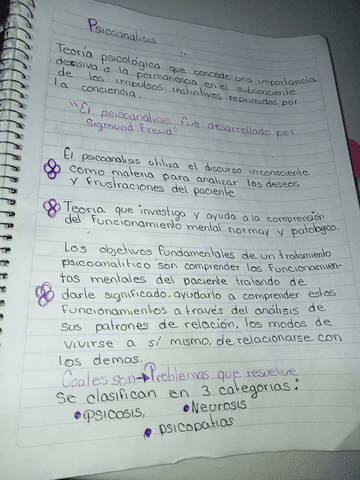 Psicoanalisis
Teoría psicológica que concede una importancia
decisiva a la permanencia en el subconciente
de los impulsos instintivos reprimidos por
la conciencia.
"El psicoanalisis fue desarrollado por
Sigmund Freud"
El psicoanalisis utiliza el discurso inconsciente
como materia para analizar los deseos
y frustraciones del paciente
Teoria que investiga y ayuda a la comprensión
del funcionamiento mental normal y patologico.
Los objetivos fundamentales de un tratamiento
psicoanalitico son comprender los funcionamien-
tos mentales del paciente tratando de
darle significado, ayudarlo a comprender estos
funcionamientos a través del análisis de
sus patrones de relación, los modos de
vivirse a sí mismo, de relacionarse con
los demas.
Cuales son → Problemas que resuelve
Se clasifican en 3 categorias:
• PSICOSIS, • Neurosis
• PSICOPATIAS